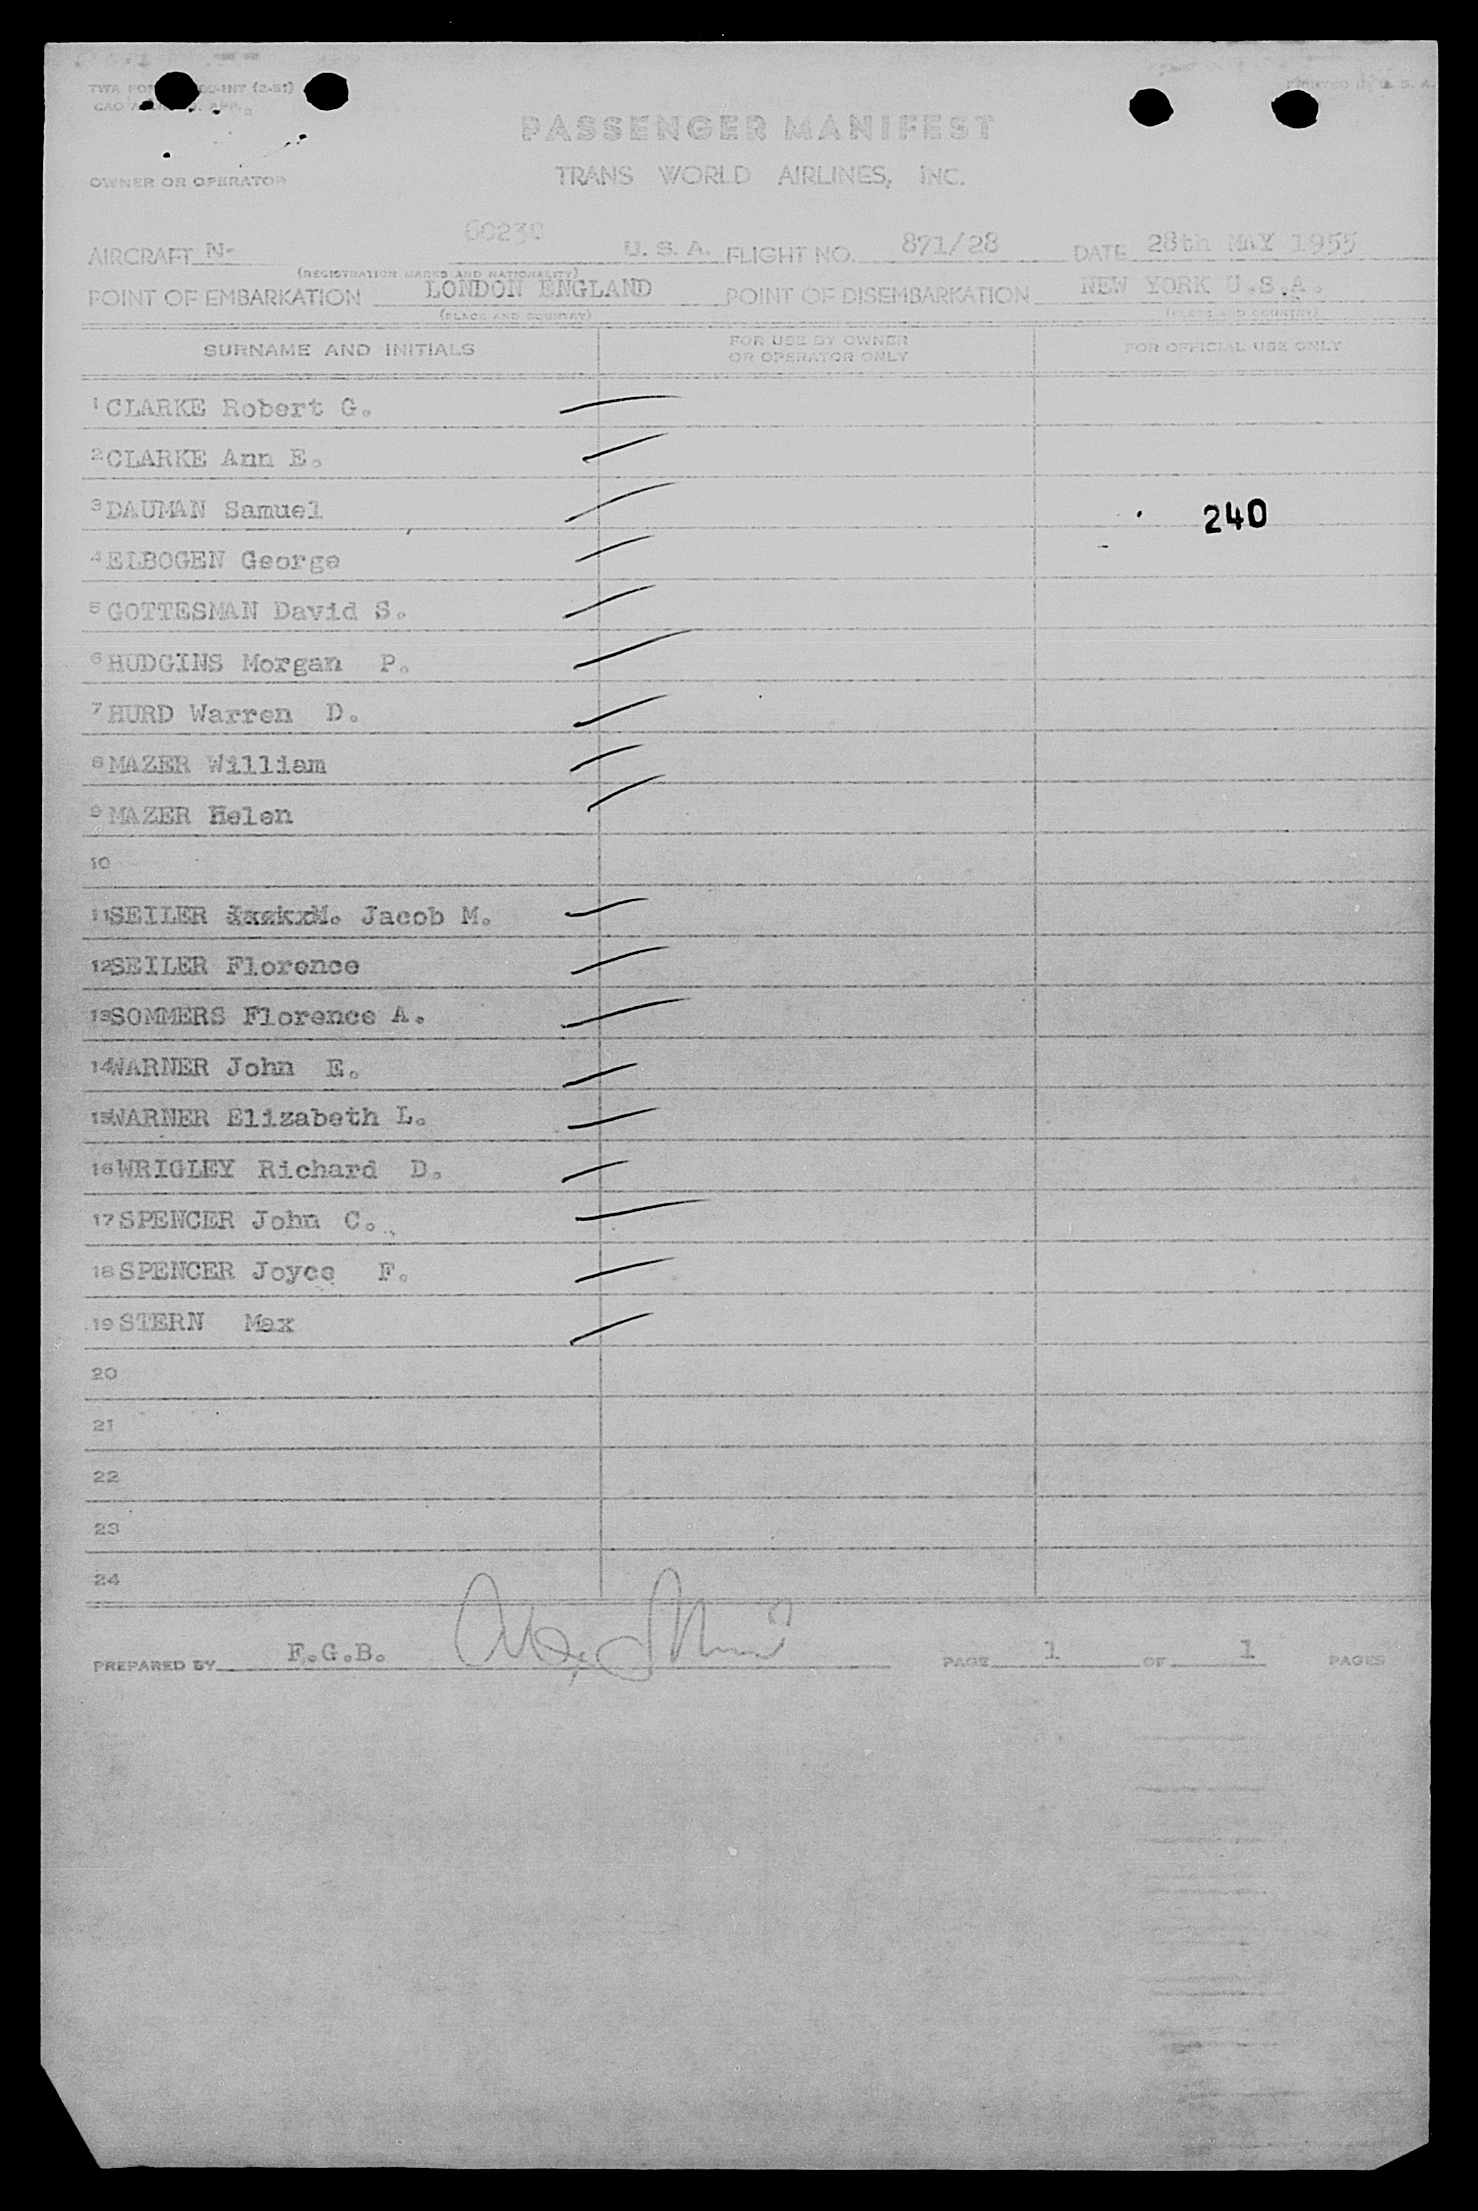 PASSENGER MANIFEST
OWNER OR OPERATOR TRANS WORLD AIRLINES, INC.
AIRCRAFT N- U. S. A. FLIGHT NO. 871/28 DATE 28th MAY 1955
(REGISTRATION MARKS AND NATIONALITY)
POINT OF EMBARKATION LONDON ENGLAND POINT OF DISEMBARKATION NEW YORK U.S.A.
(PLACE AND COUNTRY) (PLACE AND COUNTRY)
SURNAME AND INITIALS FOR USE BY OWNER OR OPERATOR ONLY FOR OFFICIAL USE ONLY
1 CLARKE Robert G.
2 CLARKE Ann E.
3 DAUMAN Samuel 240
4 ELBOGEN George
5 GOTTESMAN David S.
6 HUDGINS Morgan P.
7 HURD Warren D.
8 MAZER William
9 MAZER Helen
10
11 SEILER M. Jacob M.
12 SEILER Florence
13 SOMMERS Florence A.
14 WARNER John E.
15 WARNER Elizabeth L.
16 WRIGLEY Richard D.
17 SPENCER John C.
18 SPENCER Joyce F.
19 STERN Max
20
21
22
23
24
PREPARED BY F.G.B. PAGE 1 OF 1 PAGES